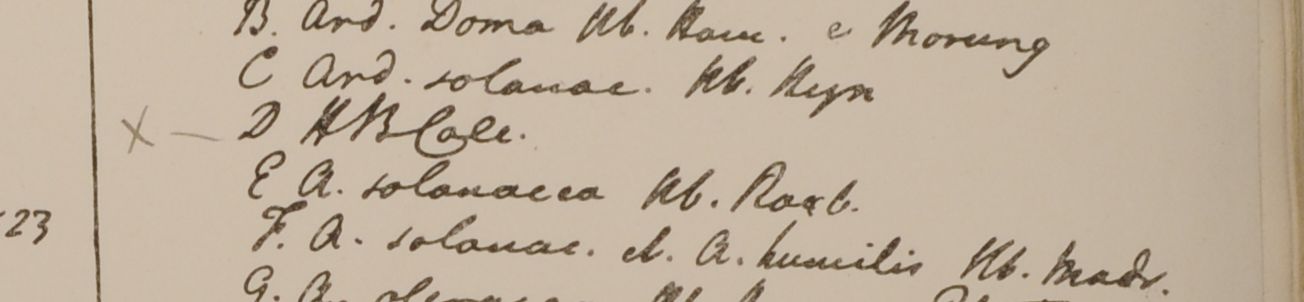 B. Ard. Doma Hb. Ham. e Morung
C Ard. solanac. Hb. Heyn
X — D HBCalc.
E A. solanacea Hb. Roxb.
23 F. A. solanac. et. A. humilis Hb. Madr.
G. A.